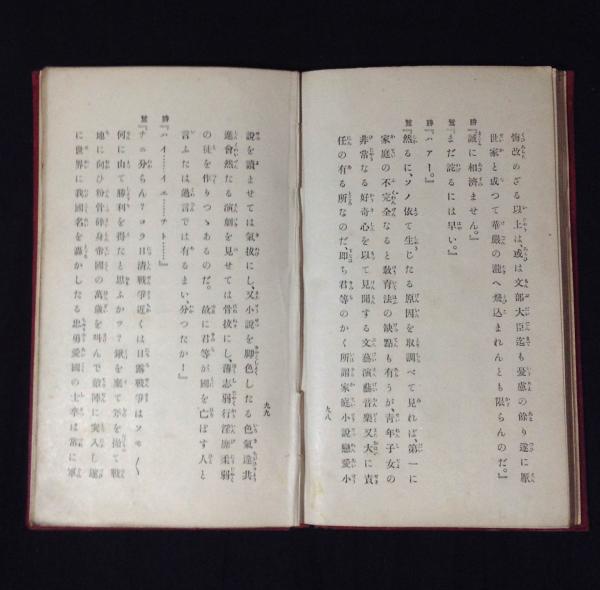 悔改のざる以上は、或は文部大臣迄も憂慮の餘り遂に厭
世家と成つて華嚴の瀧へ飛込まれんとも限らんのだ。』
勝『誠に相濟ません。』
鷲『まだ詫るには早い。』
勝『ハアー。』
鷲『然るに、ソノ依て生じたる原因を取調べて見れば、第一に
家庭の不完全なると敎育法の缺點も有うが、靑年子女の
非常なる好奇心を以て見聞する文藝演藝音樂又大に責
任の有る所なのだ、即ち君等のかく所謂家庭小說戀愛小
九八
說を讀ませては氣拔にし、又小說を脚色したる色氣達共
進會然たる演劇を見せては骨拔にし、薄志弱行淫靡柔弱
の徒を作りつゝあるのだ。故に君等が國を亡ぼす人と
言ふたは過言では有るまい、分つたか！』
勝『ハイ……イエ……チト………』
鷲『ナニ分らん？コラ日淸戰爭近くは日露戰爭はソモ〳〵
何に由て勝利を得たと思ふかツ？鍬を棄て筭を抛て戰
地に向ひ粉骨碎身帝國の萬歲を叫んで敵陣に突入し遂
に世界に我國名を轟かしたる忠勇愛國の士卒は常に軍
九九